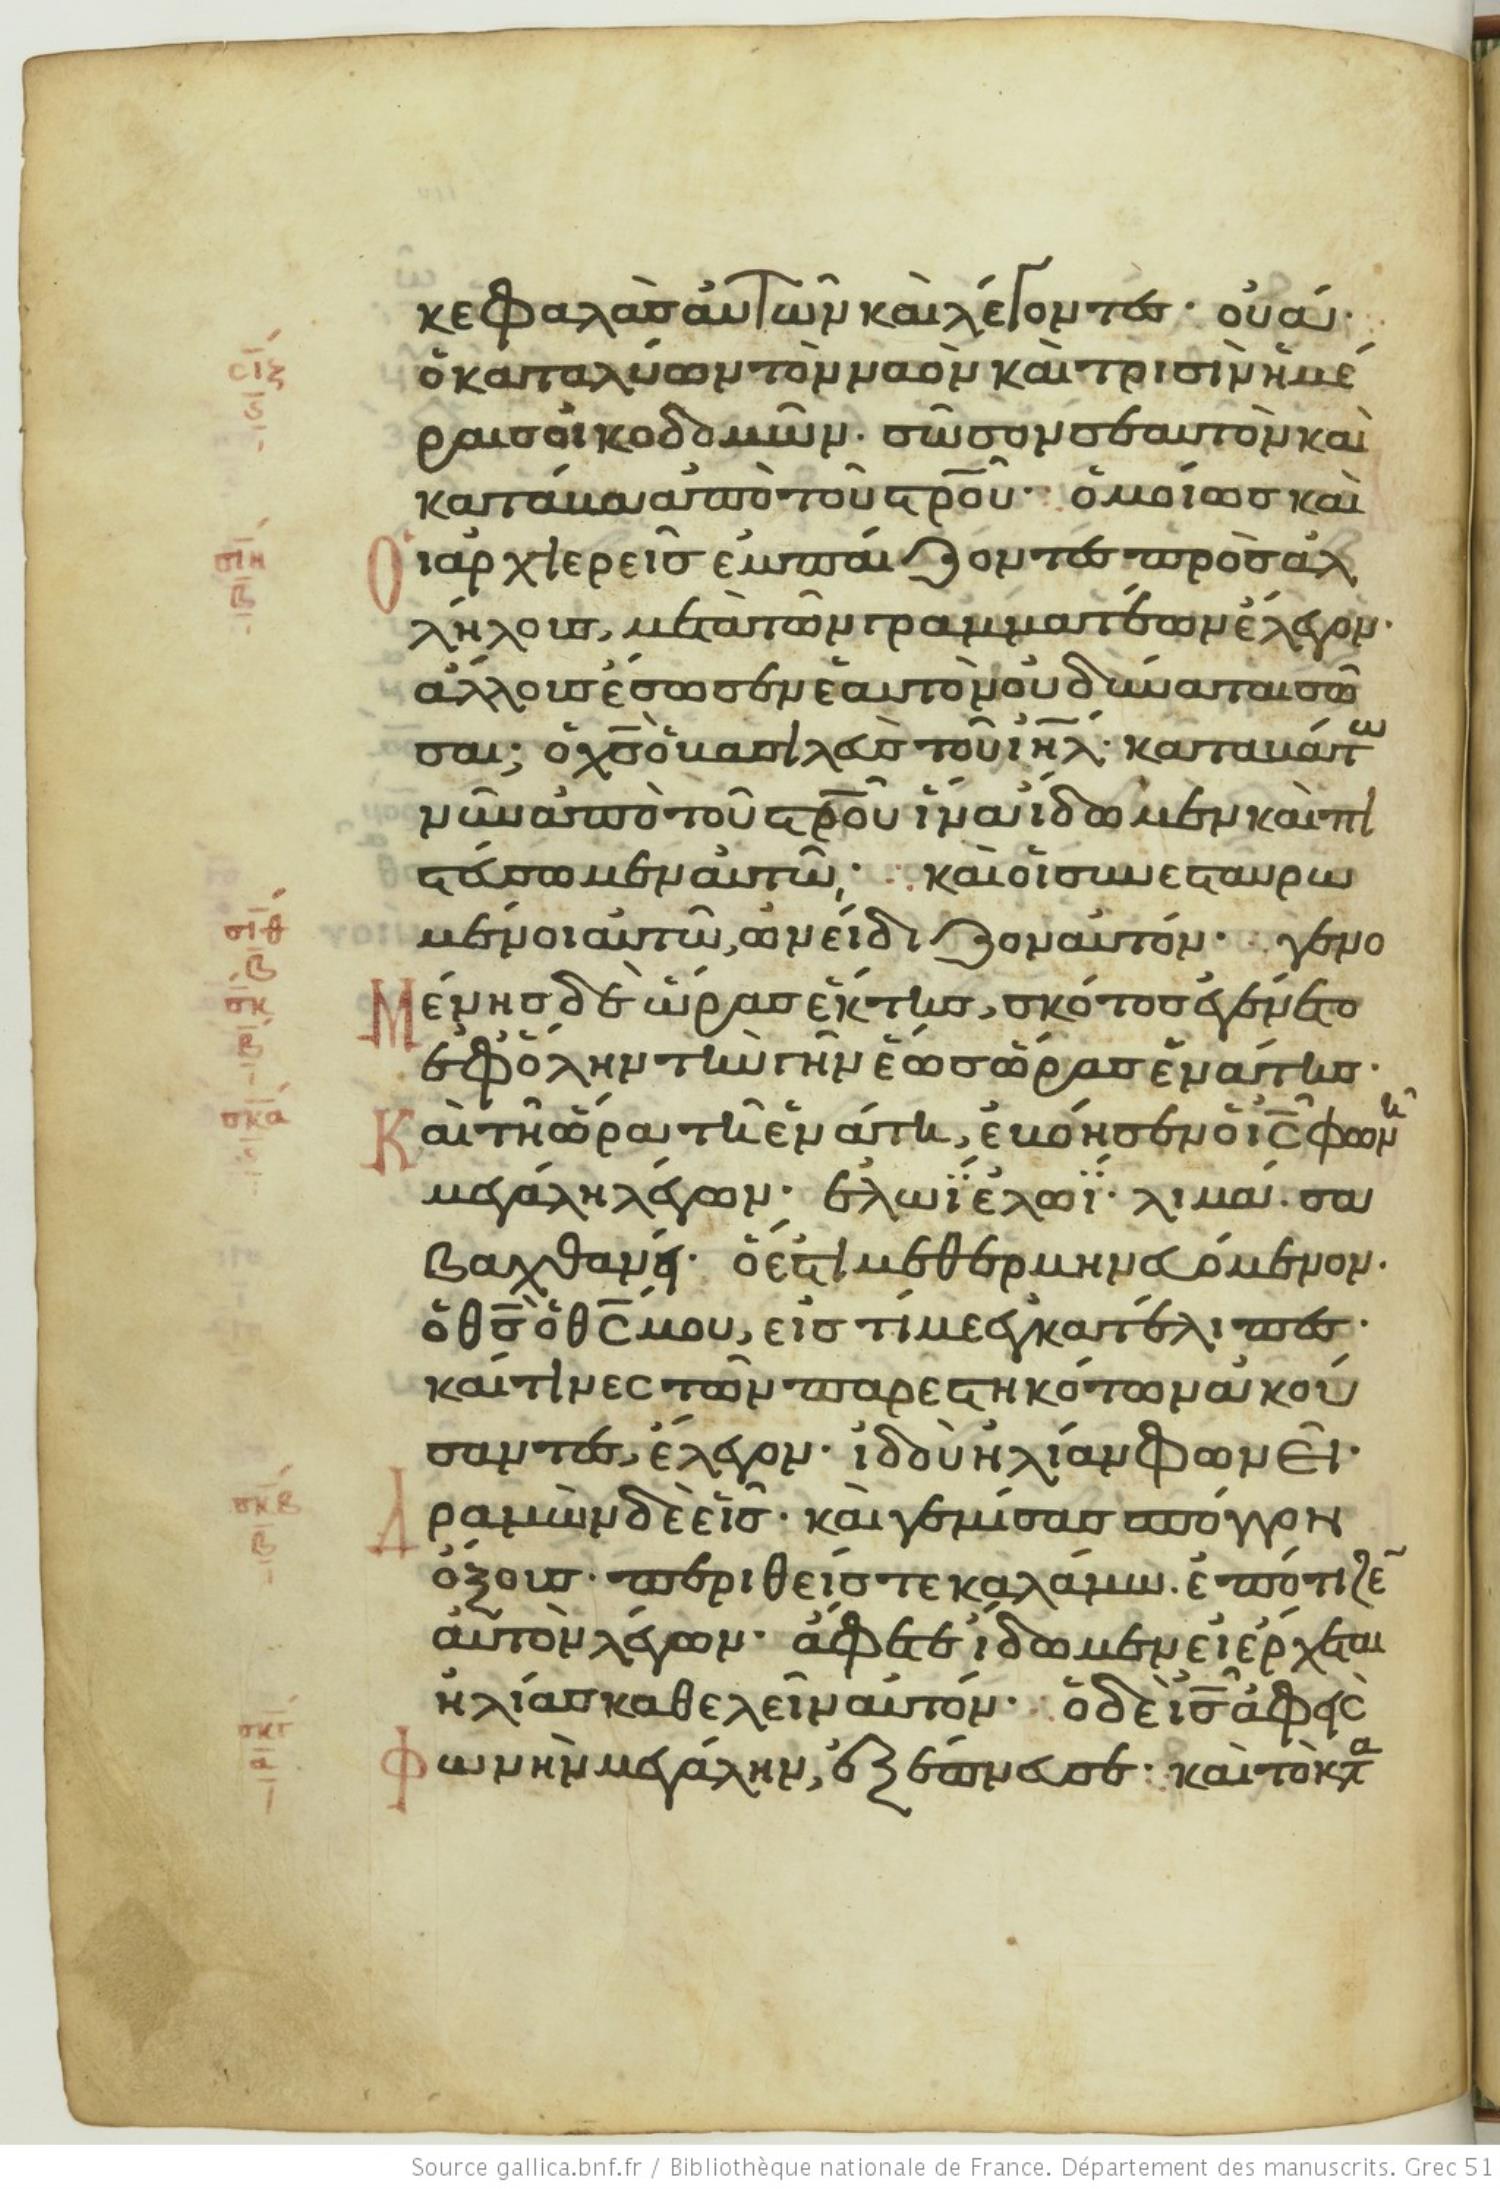 κεφαλὰσ αὐτῶν καὶ λέγοντεσ· οὐά·
ὁ καταλύων τὸν ναὸν καὶ τρισὶν ἡμέ
σιζ
ς
ραισ οἰκοδομῶν· σῶσον σεαυτὸν καὶ
κατάβα ἀπὸ τοῦ στ̅ρ̅ο̅ῦ· ὁμοίωσ καὶ
σιη
β
Οἱ ἀρχιερεῖσ ἐμπαίζοντεσ πρὸσ ἀλ
λήλουσ, μετὰ τῶν γραμματέων ἔλεγον·
ἄλλουσ ἔσωσεν ἑαυτὸν οὐ δύναται σῶ
σαι; ὁ χ̅σ̅ ὁ βασιλεὺσ τοῦ ἰ̅η̅λ̅· καταβάτω
νῦν ἀπὸ τοῦ στ̅ρ̅ο̅ῦ ἵνα ἴδωμεν καὶ πι
στεύσωμεν αὐτῶ· καὶ οἱ συνεσταυρω
σιθ
β
μένοι αὐτῶ, ὠνείδιζον αὐτόν· γενο
σκ
β
Μένησ δὲ ὥρασ ἕκτησ, σκότοσ ἐγένετο
ἐφ ὅλην τὴν γῆν ἕωσ ὥρασ ἐνάτησ·
σκα
ς
Καὶ τῆ ὥρα τῆ ἐνάτη, ἐβόησεν ὁ ἰ̅ς̅ φωνῆ
μεγάλη λέγων· ἐλωῒ ἐλωῒ· λιμά· σα
βαχθανί· ὅ ἐστι μεθερμηνευόμενον·
ὁ θ̅σ̅ ὁ θ̅ς̅ μου, εἰσ τί με ἐγκατέλιπεσ·
καί τινες τῶν παρεστηκότων ἀκού
σαντεσ, ἔλεγον· ἰδοὺ ἡλίαν φωνεῖ·
σκβ
β
Δραμὼν δὲ εἷσ· καὶ γεμίσασ σπόγγον
ὄξουσ· περιθείσ τε καλάμω· ἐπότιζε
αὐτὸν λέγων· ἄφετε ἴδωμεν εἰ ἔρχεται
ἡλίασ καθελεῖν αὐτόν· ὁ δὲ ἰ̅σ̅ ἀφεὶς
σκγ
α
Φωνὴν μεγάλην, ἐξέπνευσε· καὶ τὸ κατα
Source gallica.bnf.fr / Bibliothèque nationale de France. Département des manuscrits. Grec 51